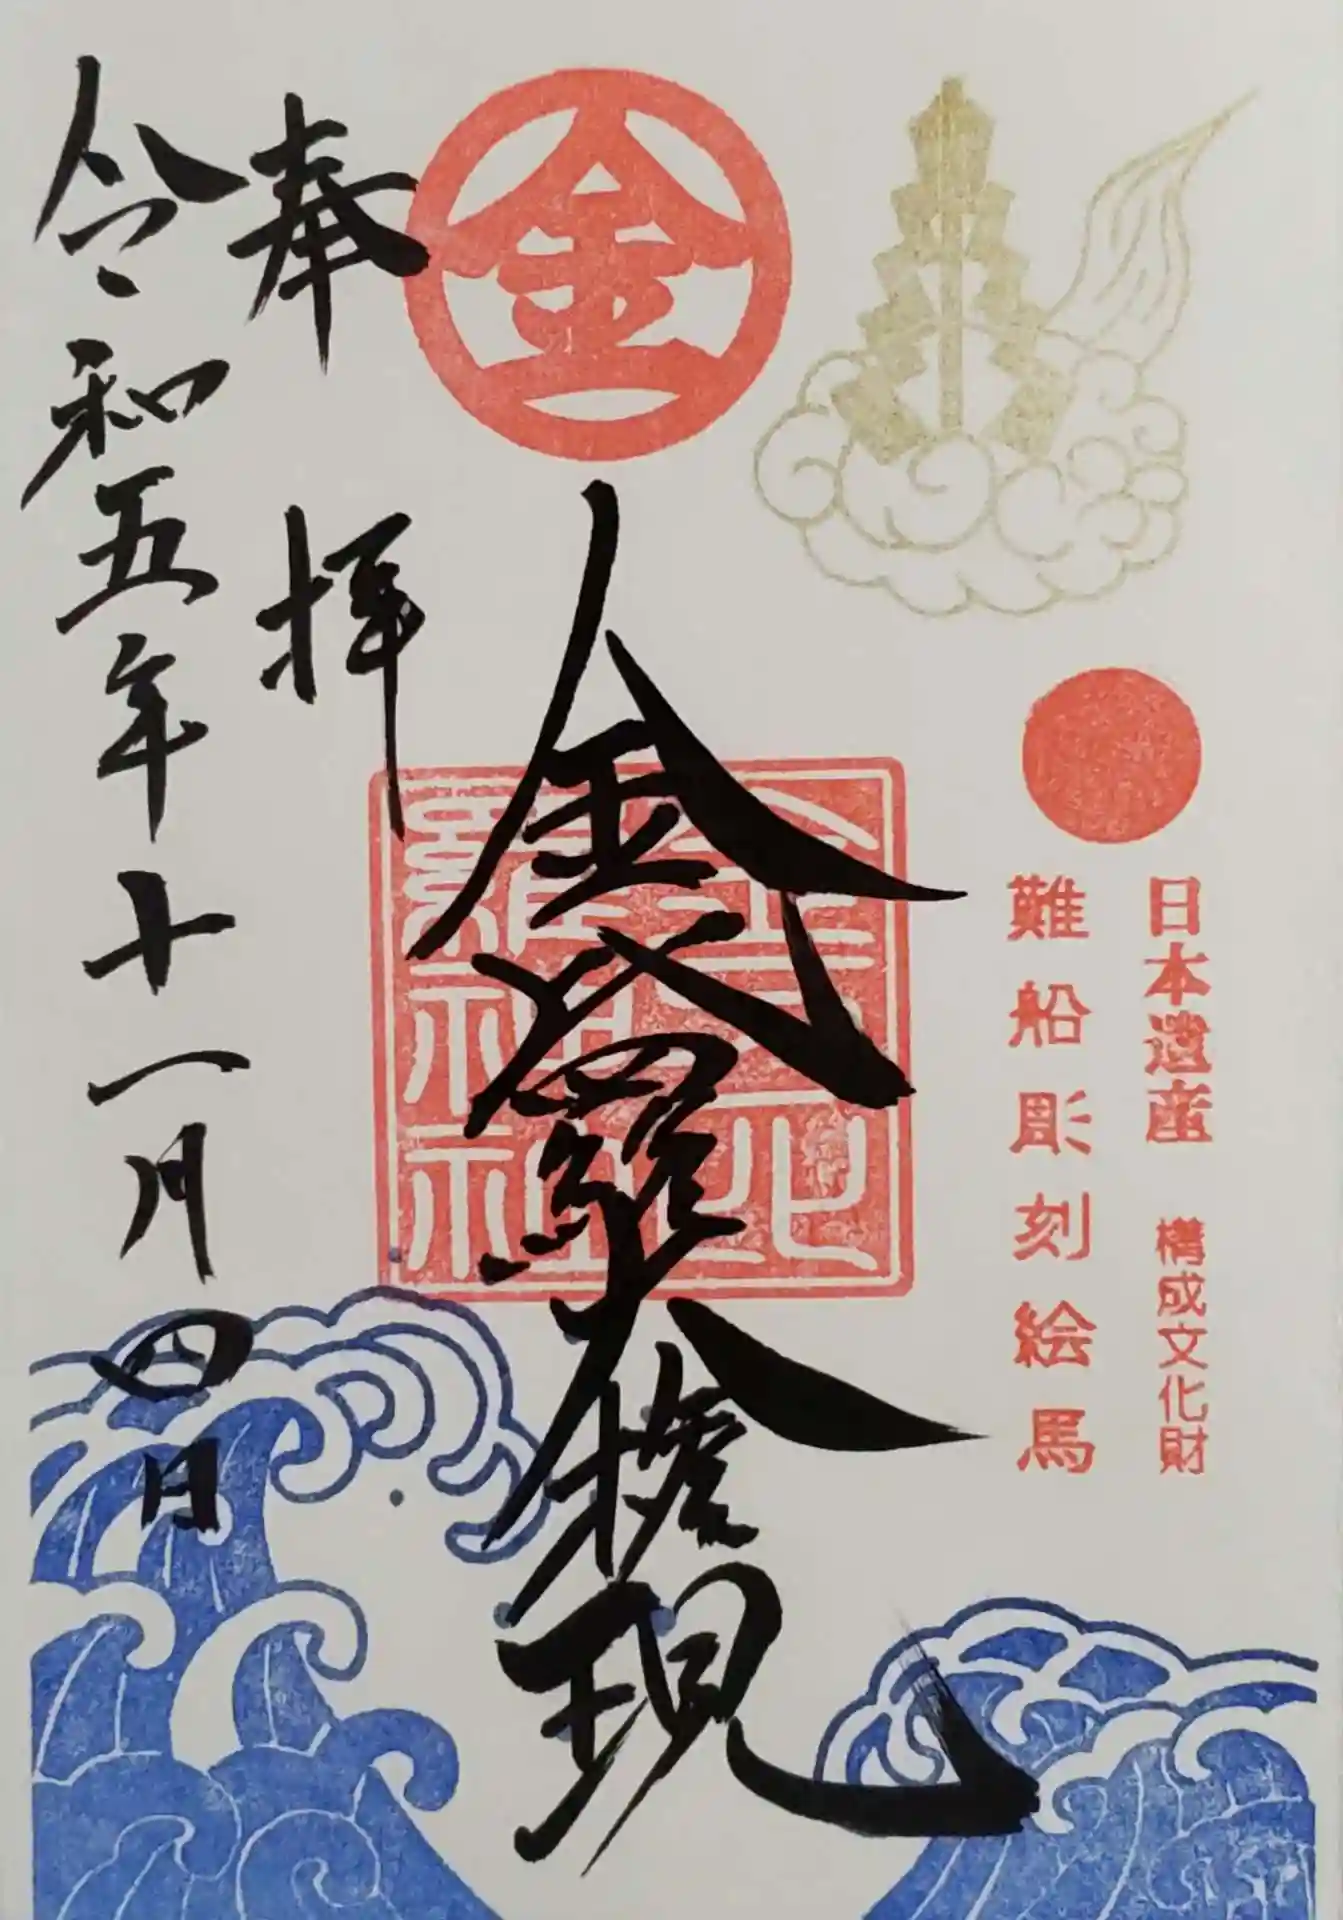 日本遺産 構成文化財
難船彫刻絵馬
金
金比羅大権現
金刀比
羅神社
奉拝
令和五年十一月四日